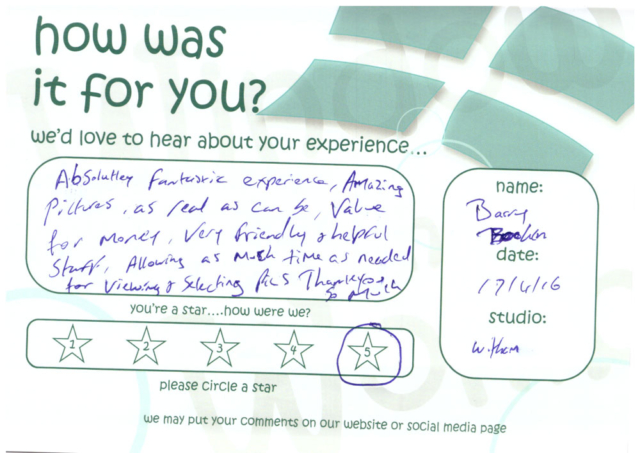 how was
it for you?
we'd love to hear about your experience...
Absolutley fantastic experience, Amazing
Pictures, as real as can be, Value
for money, Very friendly & helpful
Staff, Allowing as much time as needed
for Viewing & Selecting Pics Thankyou
So Much
name:
Barry
date:
17/4/16
studio:
Witham
you're a star....how were we?
1 2 3 4 5
please circle a star
we may put your comments on our website or social media page